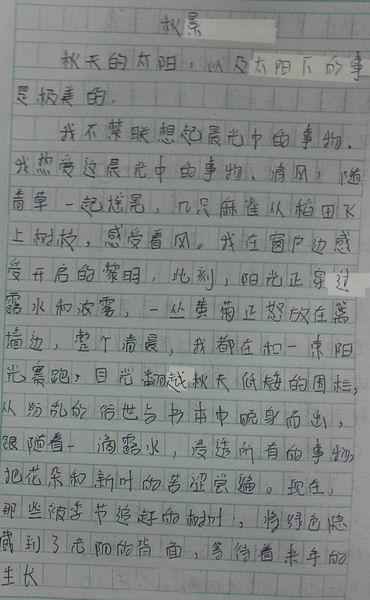 秋景
秋天的太阳，以及太阳下的事
是极美的.
我不禁联想起晨光中的事物.
我热爱这晨光中的事物，清风，随
青草一起摇晃，几只麻雀从稻田飞
上树枝，感受着风。我在窗户边感
受开启的黎明，此刻，阳光正穿过
露水和浓雾，一丛黄菊正怒放在篱
墙边，整个清晨，我都在和一束阳
光赛跑，目光翻越秋天低矮的围栏，
从纷乱的俗世与书本中脱身而出，
跟随着一滴露水，浸透所有的事物，
把花朵和新叶的苦涩尝遍。现在，
那些被季节追赶的树叶，将绿色隐
藏到了光阴的背面，等待着来年的
生长